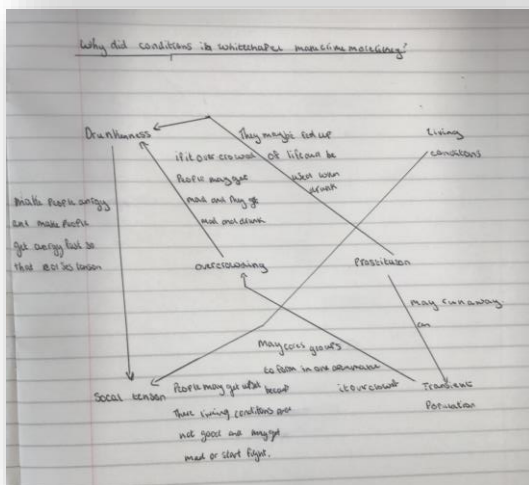 Why did conditions in whitechapel make crime more likely?
Drunkenness
They maybe fed up
of life and be
upset when
drunk
Living
conditions
if it over crowed
People may get
mad and they get
mad and drunk
make people angry
and make people
get angry fast so
that tension
overcrowding
Prostitution
may run away
on
May groups
to form in one
it overcrowd
Transient
Population
Socal tension
People may get upset becaus
There living conditions are
not good and may get
mad or start fight.